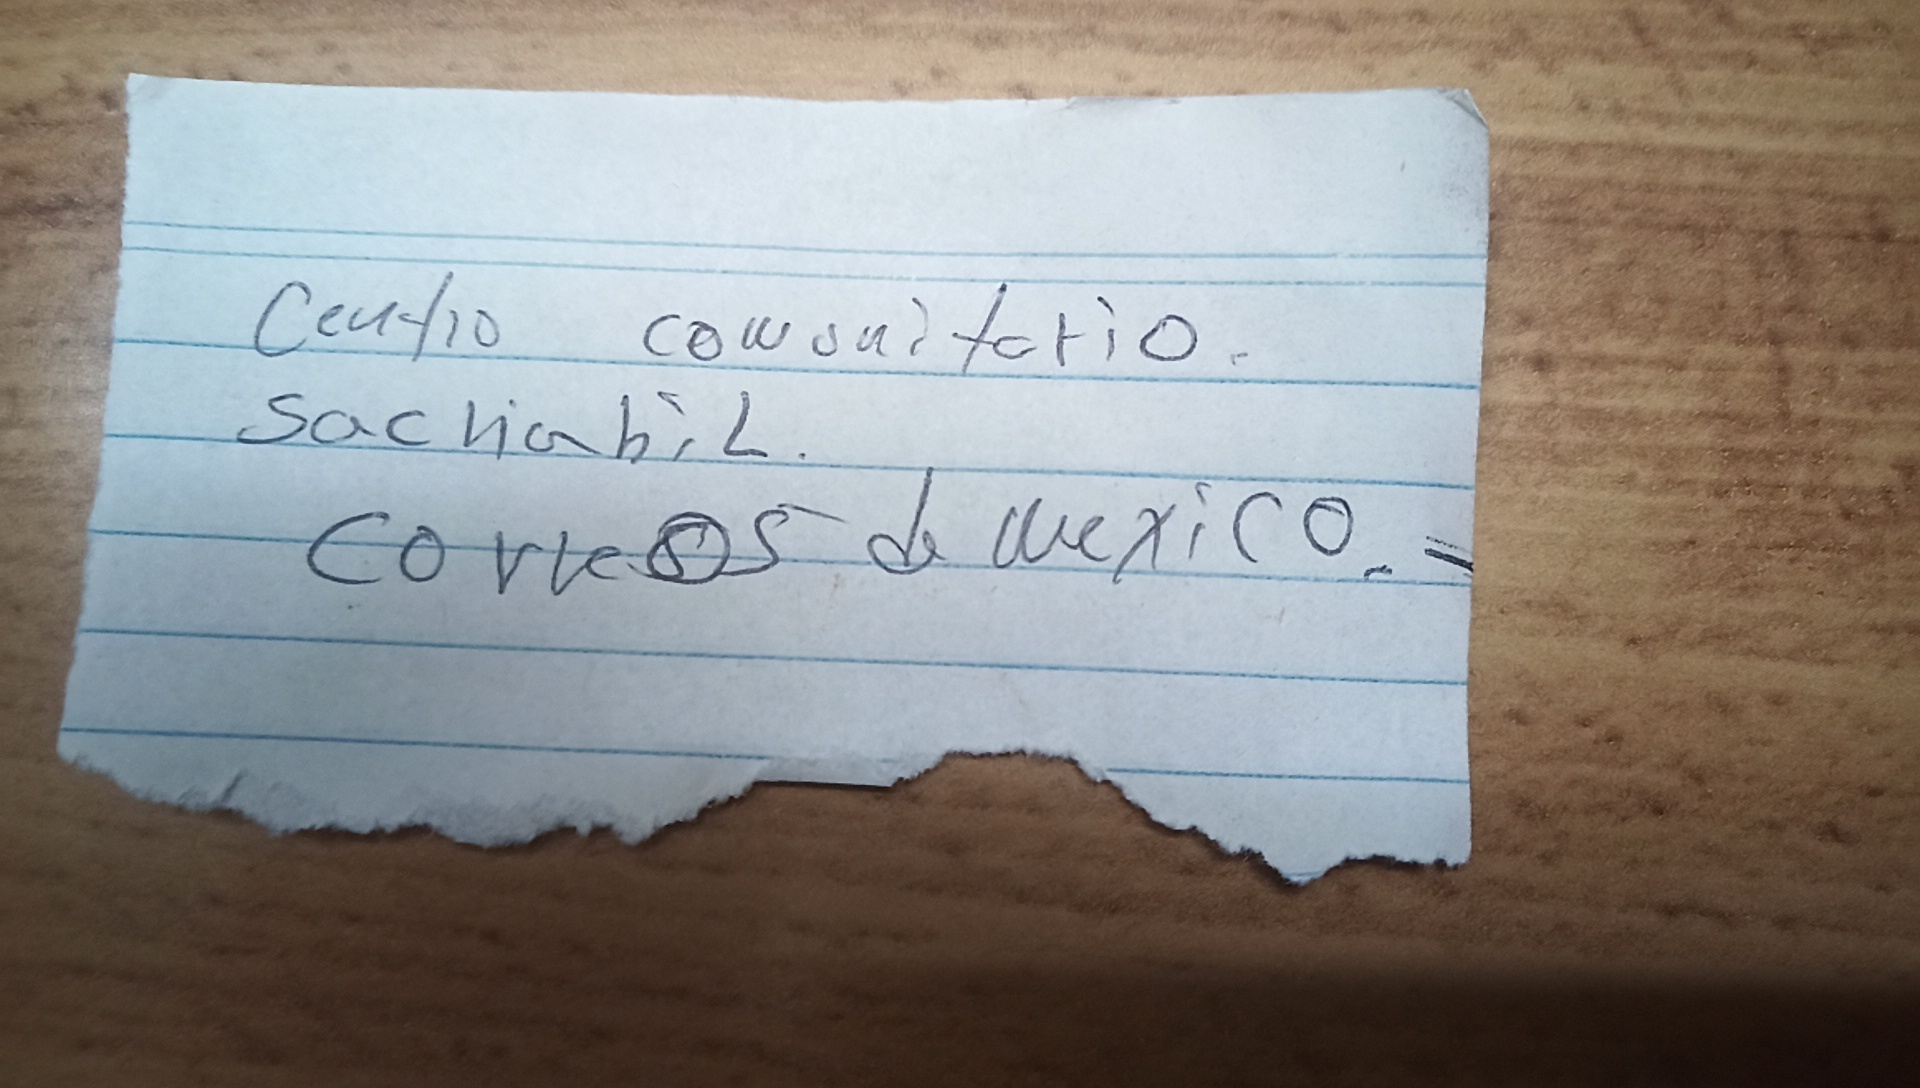 Centro comunitario.
sachabil.
Correos de mexico.-